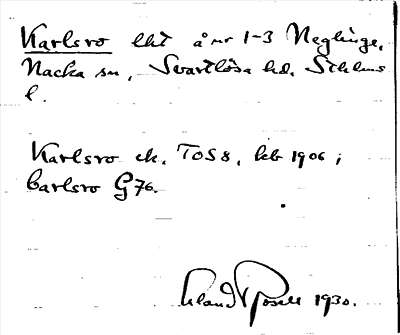 Karlsro lht å nr 1-3 Neglinge,
Nacka sn, Svartlösa hd. Sthlms
l.
Karlsro ek. TOS 8, keb 1906;
Carlsro G 76.
Erland Rosell 1930.